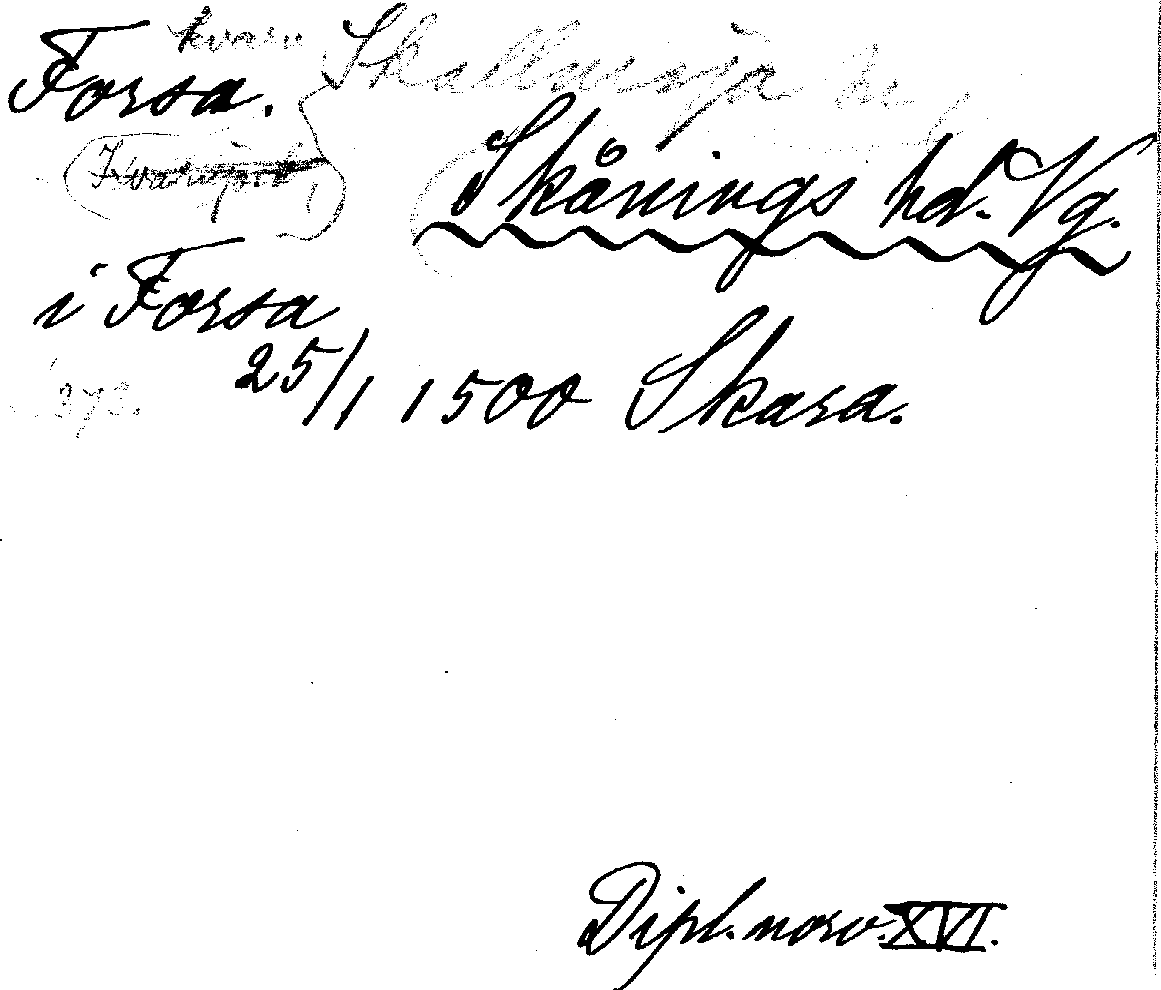 kvarn Skallmeja
Forsa.
Skånings hd. Vg.
i Forsa
25/1 1500 Skara.
373.
Dipl. norv. XVI.